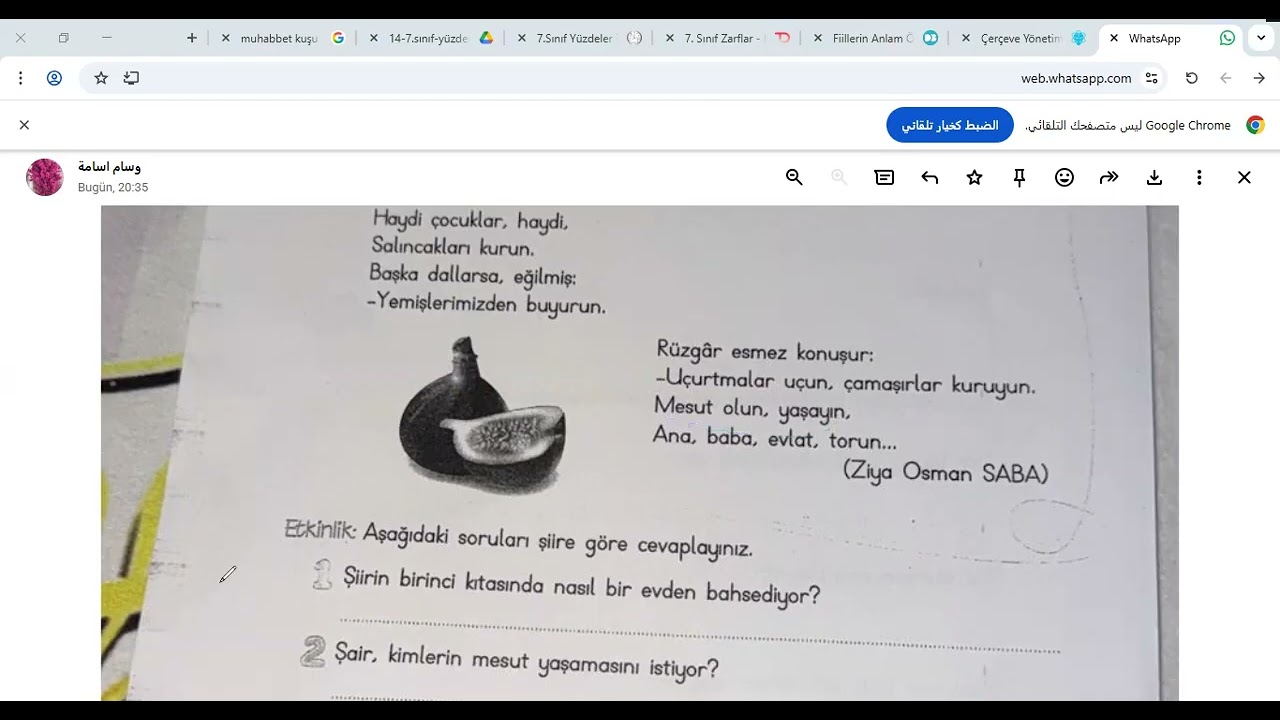 muhabbet kuşu
14-7.sınıf-yüzde
7.Sınıf Yüzdeler
7. Sınıf Zarflar -
Fiillerin Anlam Ö
Çerçeve Yönetim
WhatsApp
web.whatsapp.com
Google Chrome ليس متصفحك التلقائي.
الضبط كخيار تلقائي
وسام اسامة
Bugün, 20:35
Haydi çocuklar, haydi,
Salıncakları kurun.
Başka dallarsa, eğilmiş:
-Yemişlerimizden buyurun.
Rüzgâr esmez konuşur:
-Uçurtmalar uçun, çamaşırlar kuruyun.
Mesut olun, yaşayın,
Ana, baba, evlat, torun...
(Ziya Osman SABA)
Etkinlik: Aşağıdaki soruları şiire göre cevaplayınız.
1 Şiirin birinci kıtasında nasıl bir evden bahsediyor?
2 Şair, kimlerin mesut yaşamasını istiyor?